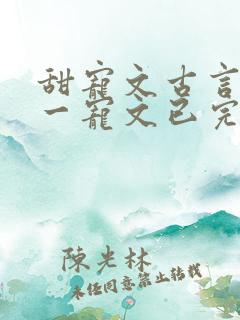 甜寵文古言
一寵文已完
陳光林
未经同意禁止转载